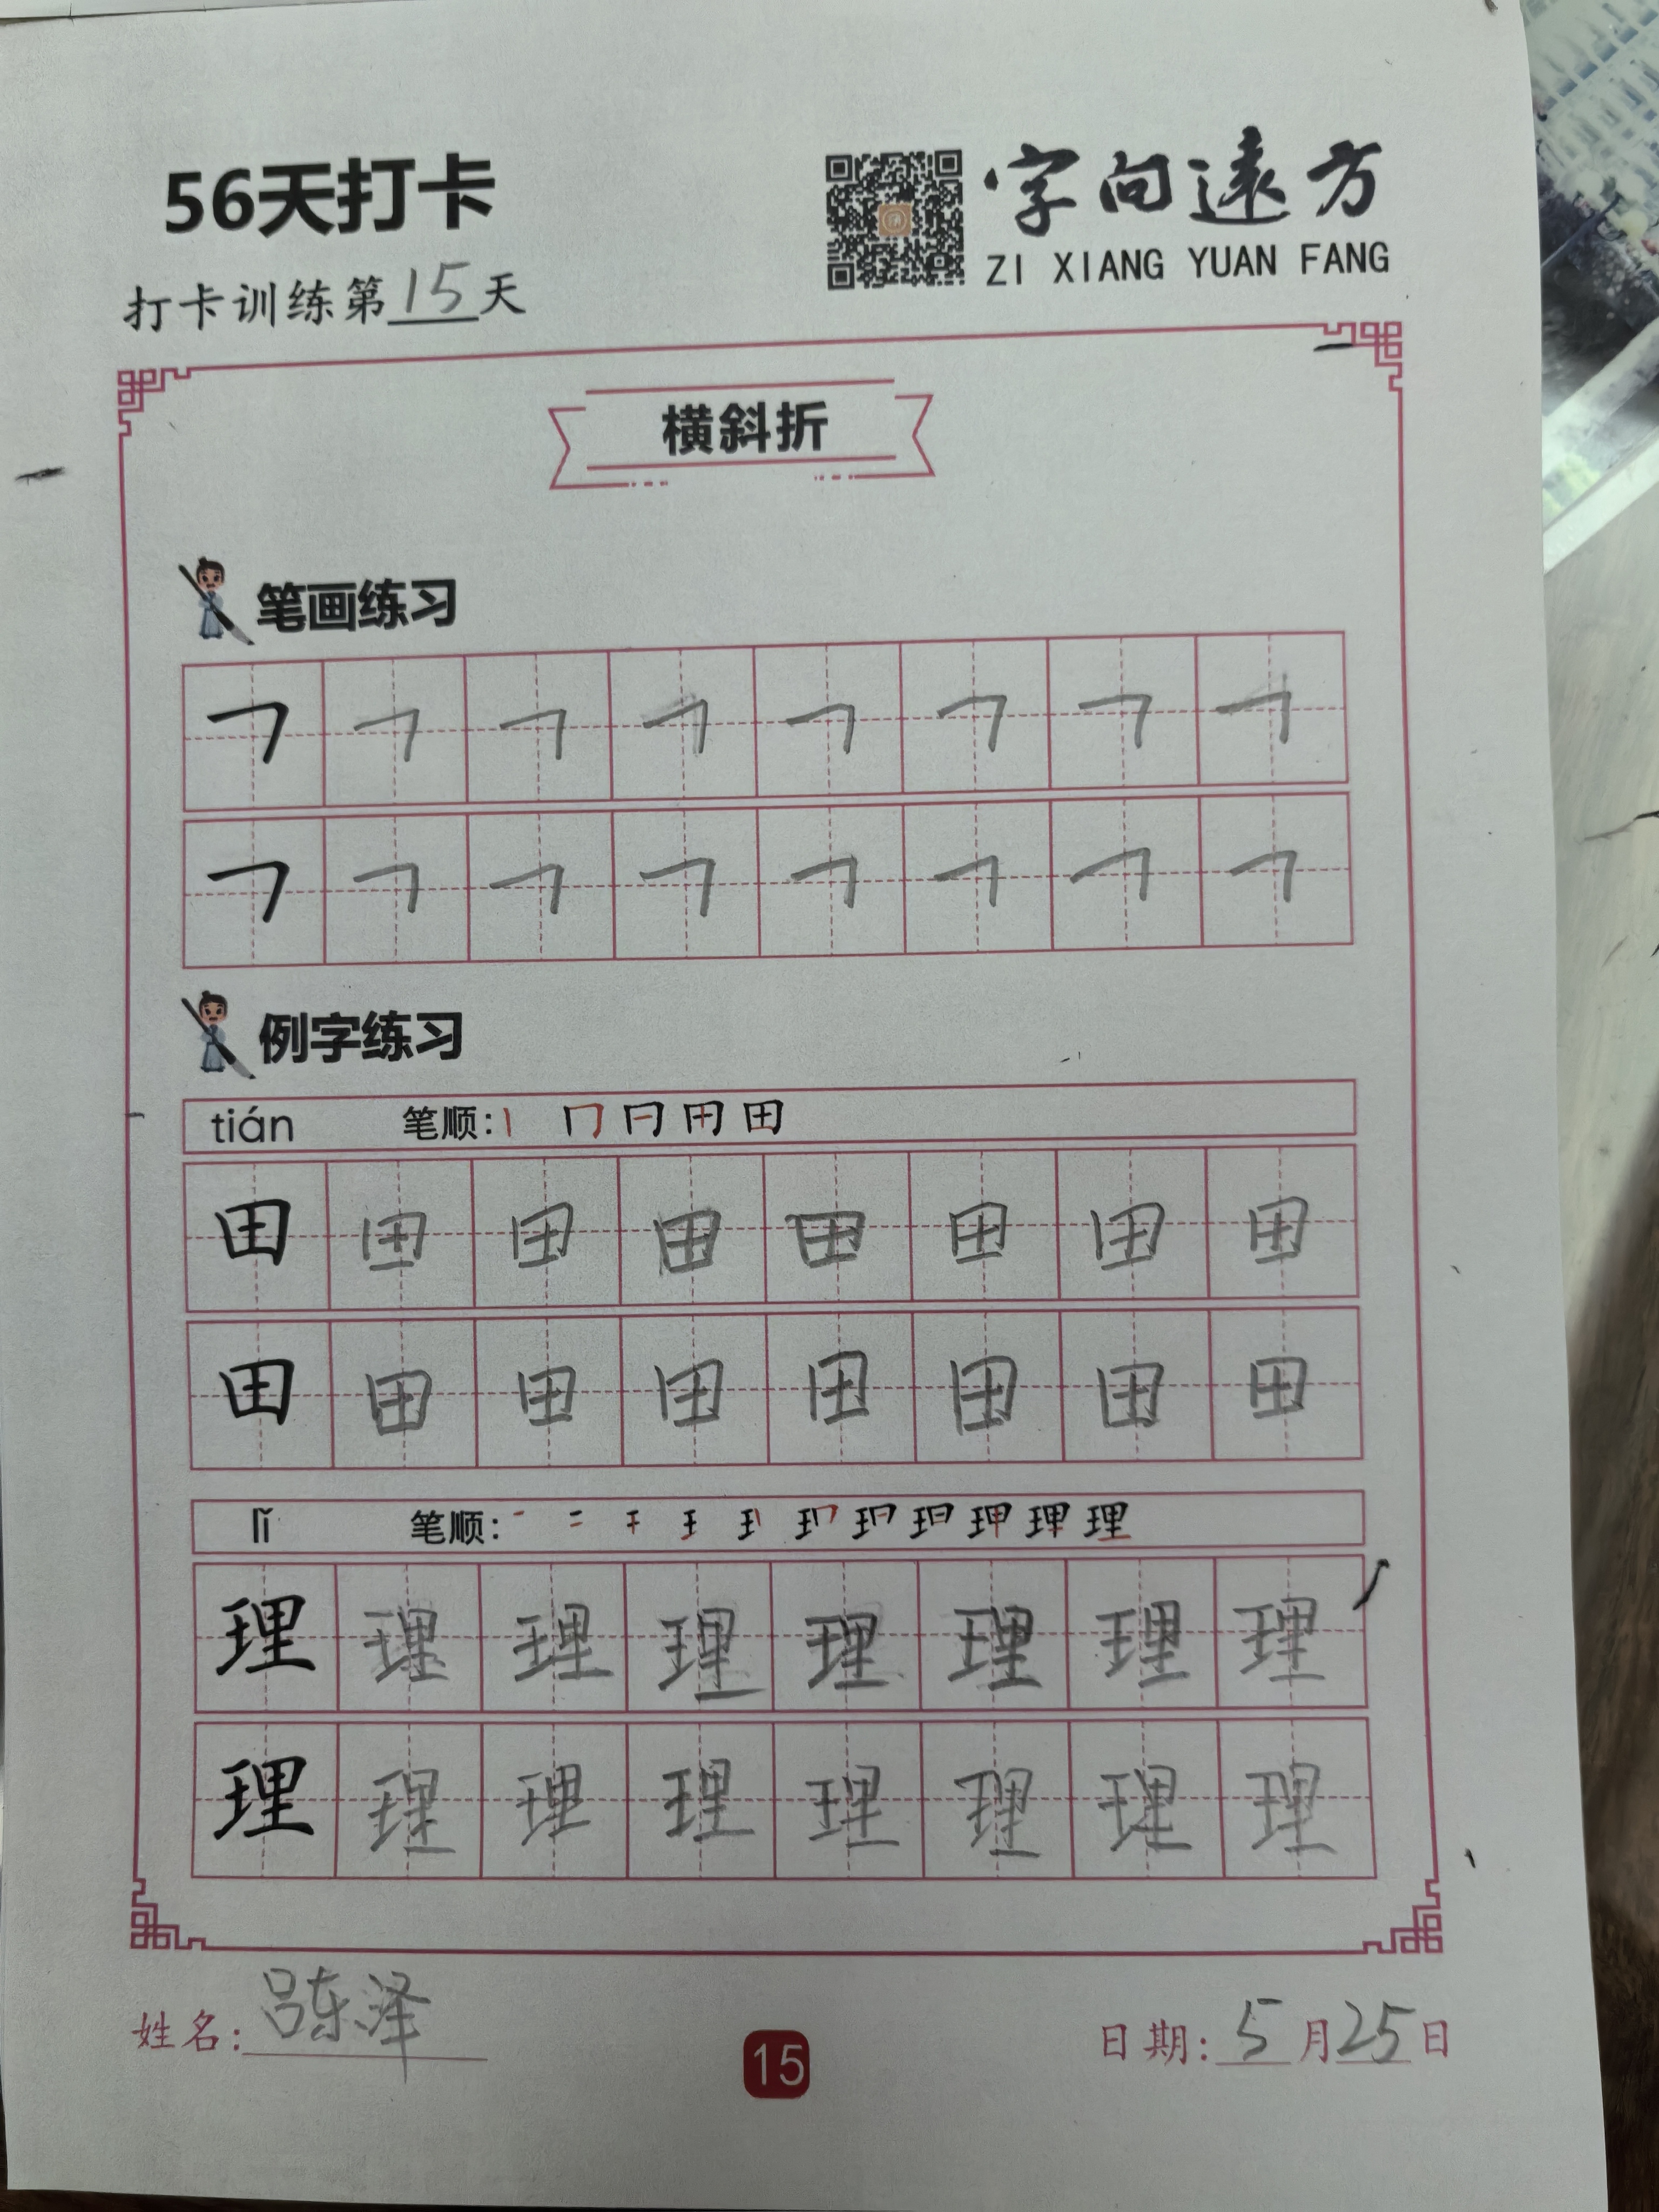 56天打卡
字向遠方
ZI XIANG YUAN FANG
打卡训练第15天
横斜折
笔画练习
㇕ ㇕ ㇕ ㇕ ㇕ ㇕ ㇕ ㇕
㇕ ㇕ ㇕ ㇕ ㇕ ㇕ ㇕ ㇕
例字练习
tián 笔顺:
田 田 田 田 田 田 田 田
田 田 田 田 田 田 田 田
lǐ 笔顺:
理 理 理 理 理 理 理 理
理 理 理 理 理 理 理 理
姓名:吕东泽
15
日期:5月25日